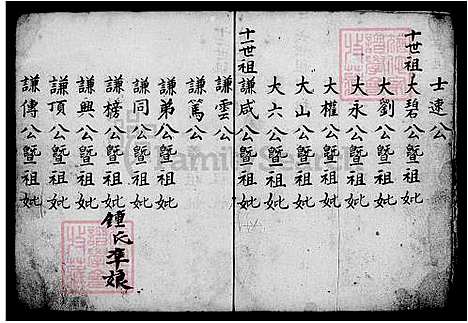 士連公
十世祖 大碧公暨祖妣
大劉公暨祖妣
大永公暨祖妣
大權公暨祖妣
大山公暨祖妣
大六公暨祖妣
十一世祖 謙咸公暨祖妣
謙雲公
謙篤公
謙弟公暨祖妣
謙同公暨祖妣
謙榜公暨祖妣
謙興公暨祖妣
謙頂公暨祖妣 鍾氏準娘
謙傳公暨祖妣